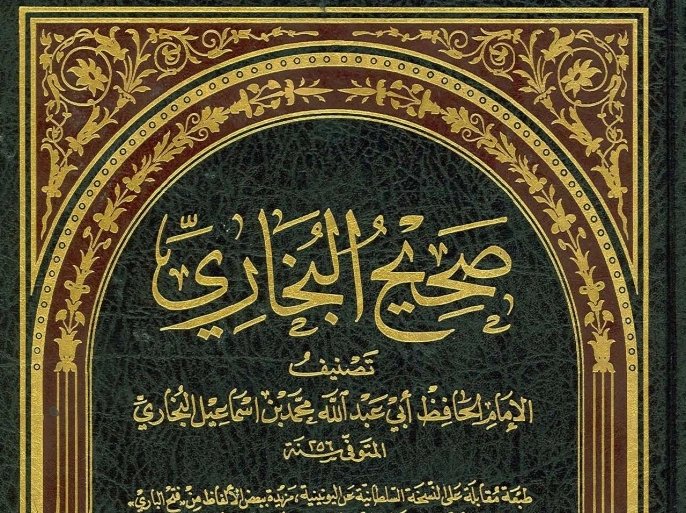 صَحِيحُ البُخَارِيِّ
تَصْنِيفُ
الإِمَامِ الحَافِظْ أَبِي عَبْدِ اللهِ مُحَمَّد بْن اسْمَاعِيل البُخَارِي
المتَوَفَّى سَنَة ٢٥٦
طَبْعَة مُقَابلَة عَلى النُّسخَة السُّلطَانيَّة عَن اليُونينيَّة، مَزِيدَة ببَعض الأَلفَاظ مِن «فَتح البَاري»